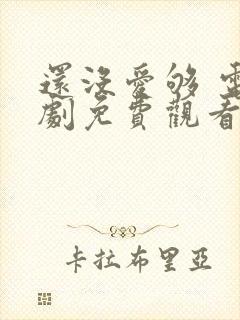 還沒愛够 電
劇免費觀看
卡拉布里亞